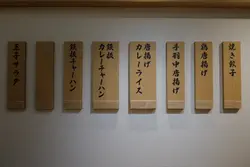 焼き餃子
鶏唐揚げ
手羽中唐揚げ
唐揚げ
カレーライス
鉄板
カレーチャーハン
鉄板チャーハン
玉子サラダ